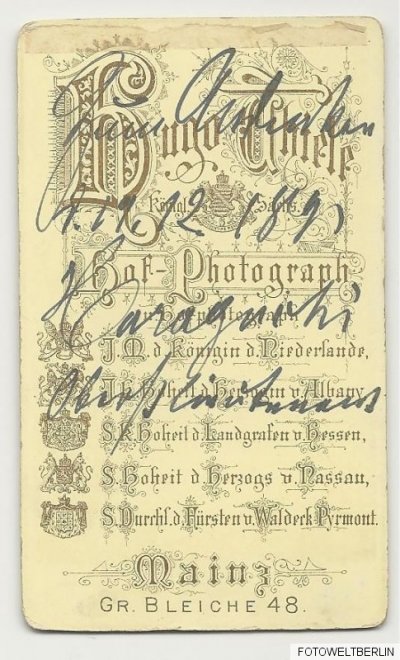 Hugo Thiele
Zum Andenken
Königl. Sächs.
d. 19.12.189
Hof-Photograph
u. Hofphotograph
J.M. d. Königin d. Niederlande,
J.K. Hoheit d. Herzogin v. Albany
Oberstlieutenant
S.K. Hoheit d. Landgrafen v. Hessen,
S. Hoheit d. Herzogs v. Nassau,
S. Durchl. d. Fürsten v. Waldeck Pyrmont.
Mainz
GR. BLEICHE 48.
FOTOWELTBERLIN